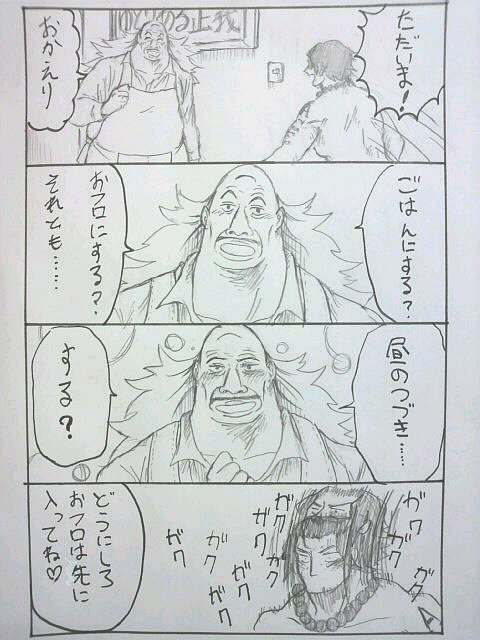 ゆとりある正義
ただいま!
おかえり
ごはんにする?
おフロにする?
それとも……
昼のつづき……
する?
ガク
ガク
ガク
ガク
ガク
ガク
ガク
ガク
ガク
どうにしろ
おフロは先に
入ってね♡